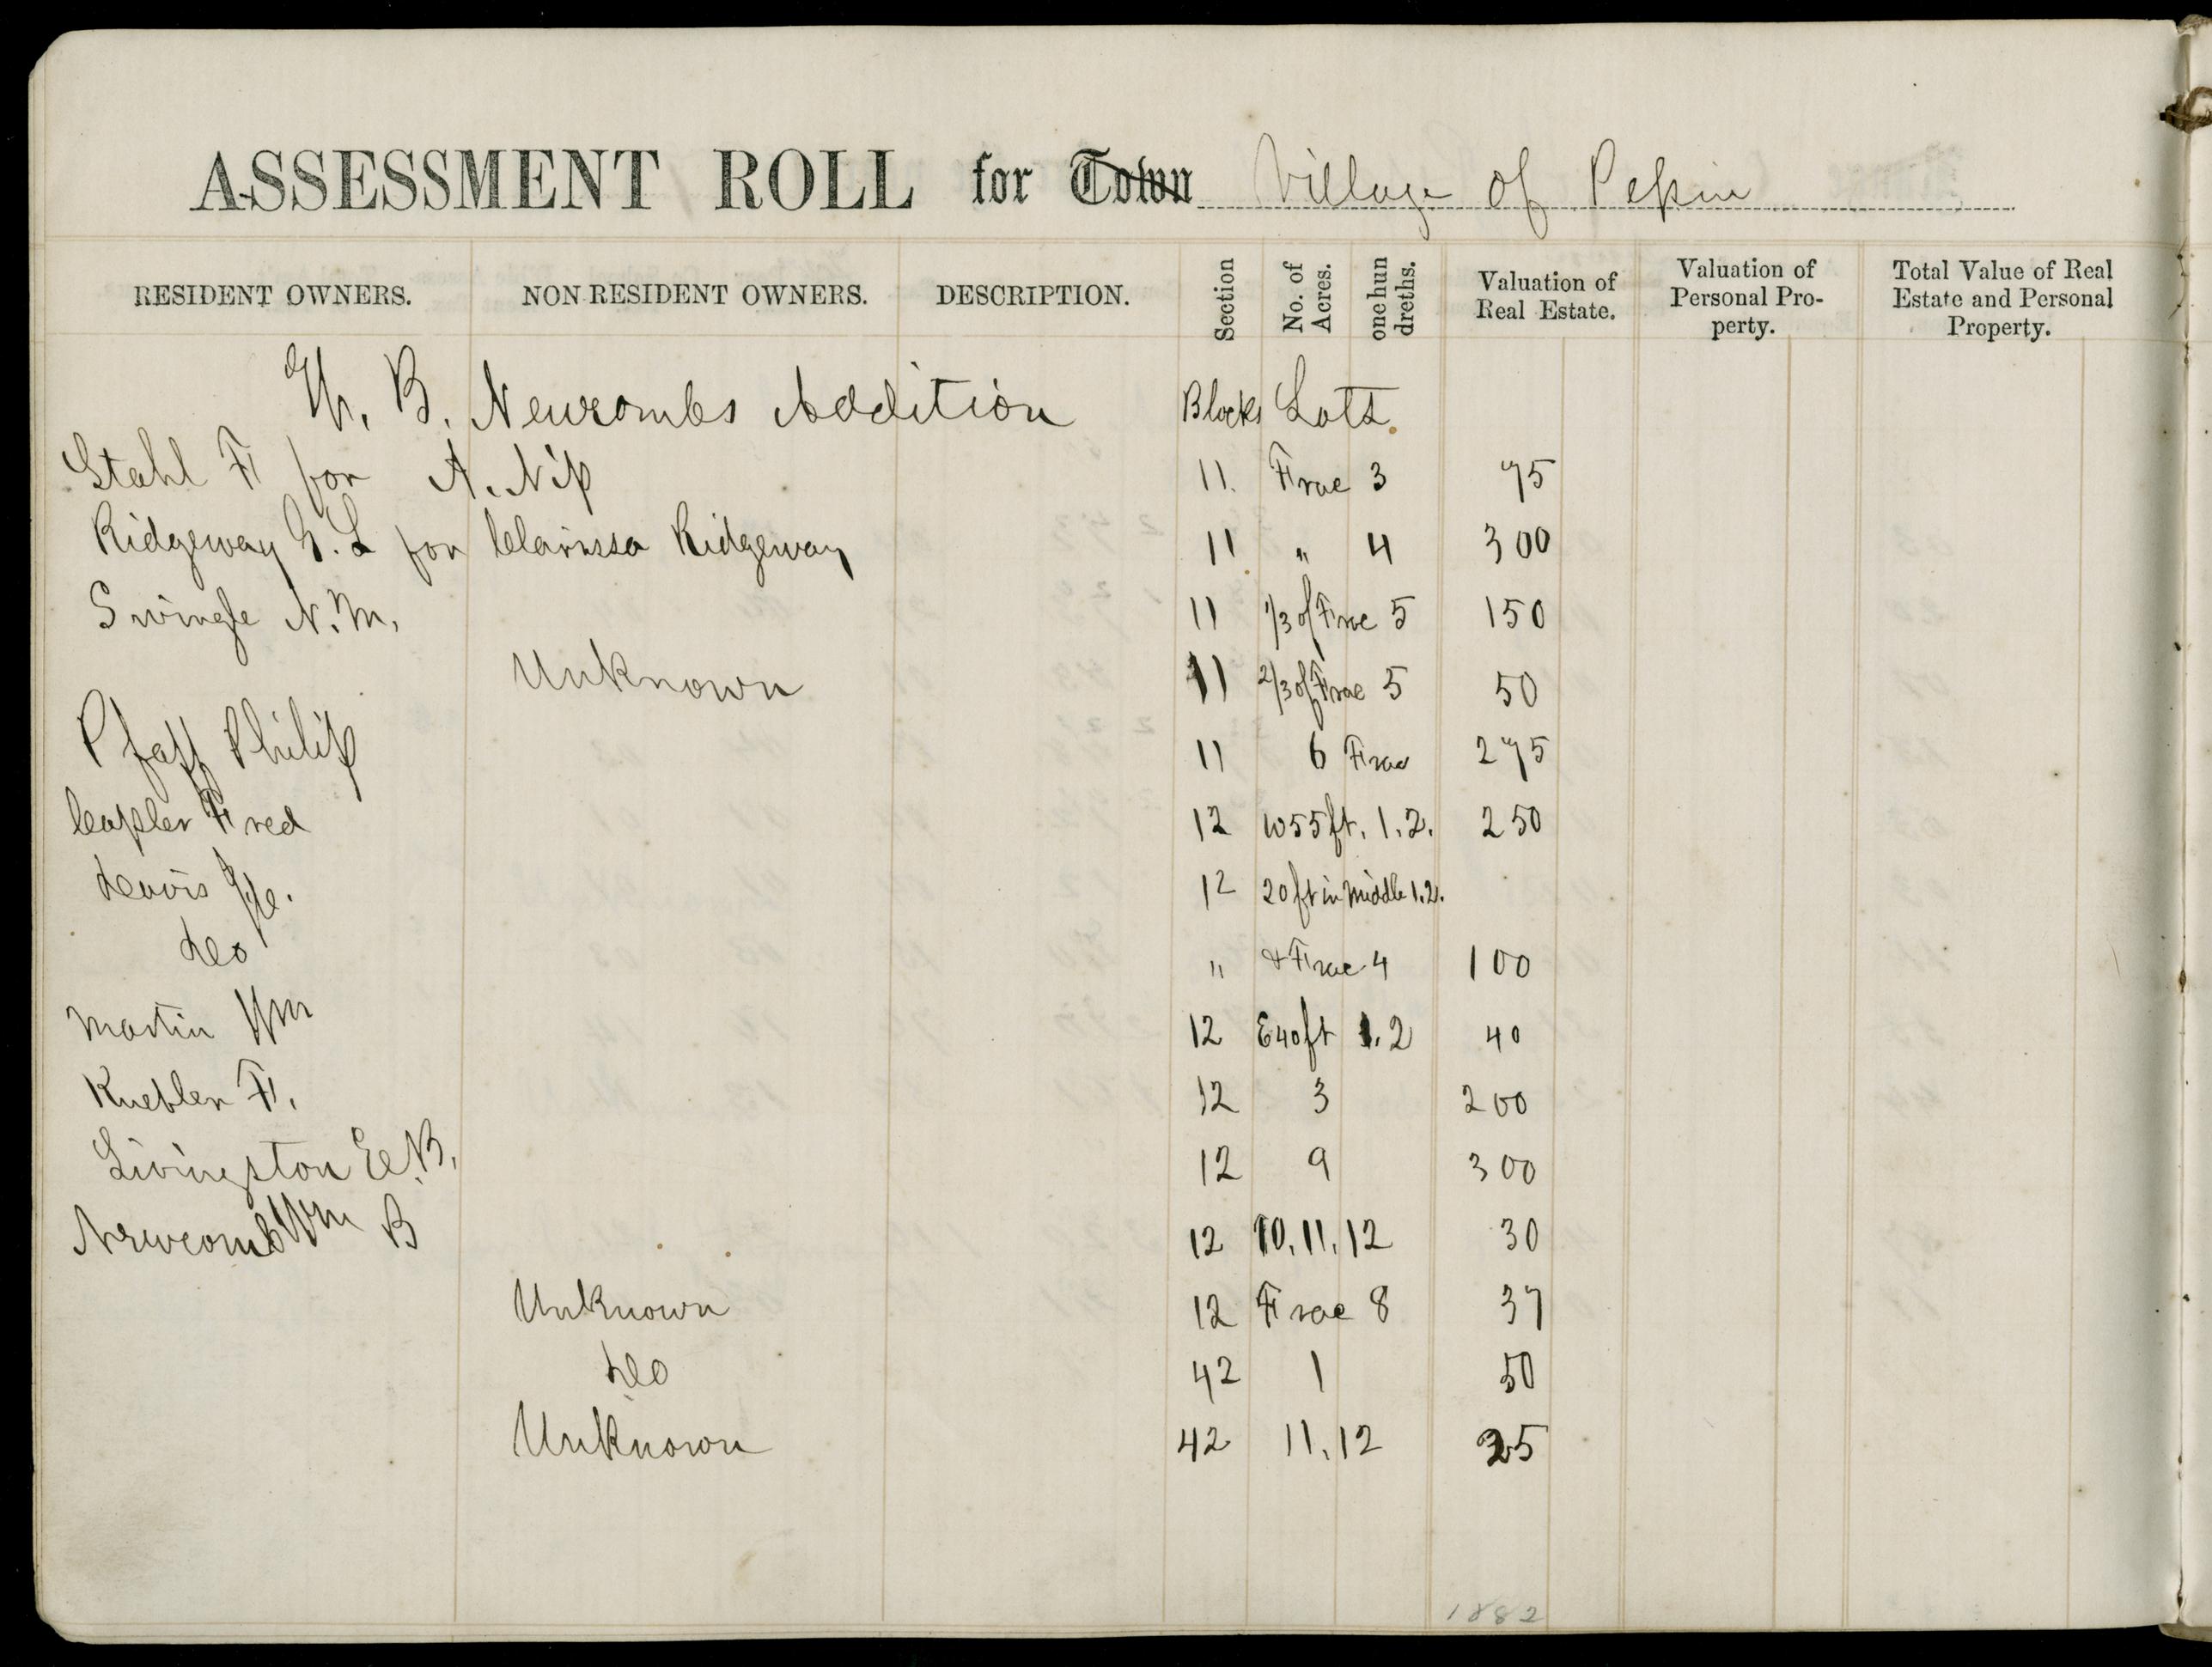 ASSESSMENT ROLL for Town Village of Pepin
RESIDENT OWNERS. NON-RESIDENT OWNERS. DESCRIPTION. Section No. of Acres. one hun dreths. Valuation of Real Estate. Valuation of Personal Pro- perty. Total Value of Real Estate and Personal Property.
W. B. Newcombs Addition Blocks Lots.
Stahl F for A. Nip 11. Frac 3 75
Ridgeway G. L for Clarissa Ridgeway 11 " 4 300
Swingle N. M. 11 1/3 of Frac 5 150
Unknown 11 2/3 of Frac 5 50
Pfaff Philip 11 6 Frac 275
Capler Fred 12 W 55 ft. 1.2. 250
12 20 ft in Middle 1.2.
Do " & Frac 4 100
Martin Wm 12 E 40 ft 1.2 40
Kuebler F. 12 3 200
Livingston E. B. 12 9 300
Newcomb Wm B 12 10, 11, 12 30
Unknown 12 Frac 8 37
Do 42 1 50
Unknown 42 11, 12 25
1882